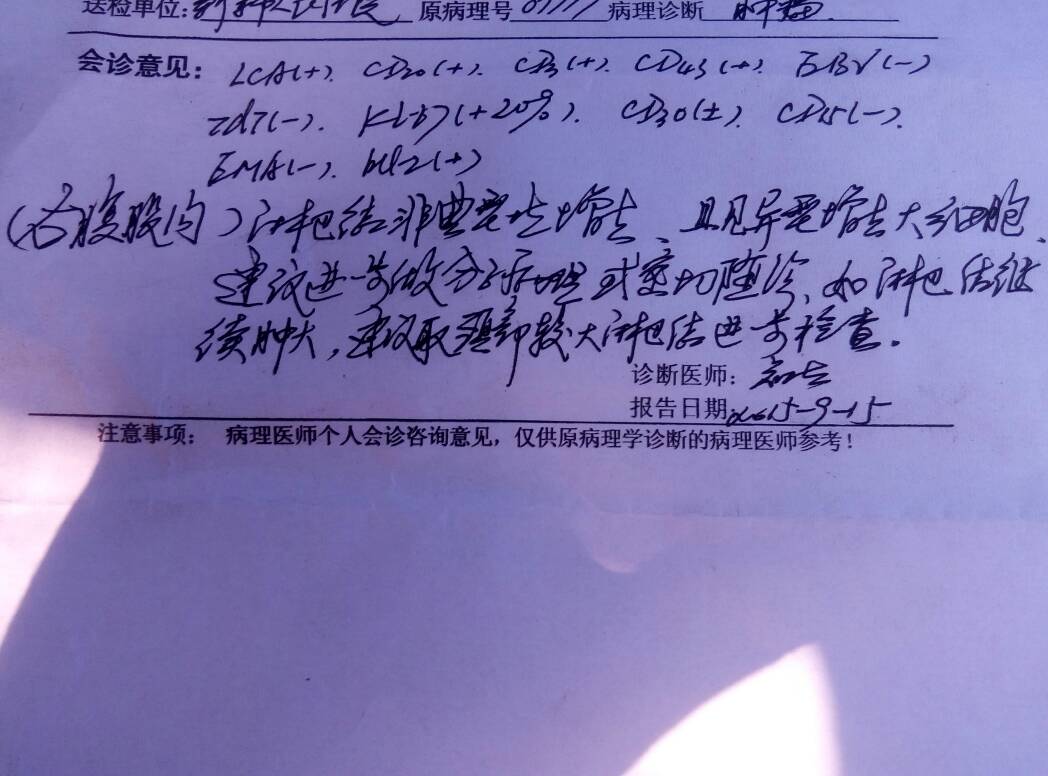 送检单位: 原病理号 病理诊断 肿瘤
会诊意见: LCA(+). CD20(+). CD3(+). CD43(+). EBV(-)
TdT(-). Ki67(+20%). CD30(±). CD15(-).
EMA(-). bcl2(+)
(右腹股沟)淋巴结非典型性增生、且见异型增生大细胞、
建议进一步做分子病理或密切随诊、如淋巴结继
续肿大,建议取颈部较大淋巴结进一步检查.
诊断医师:
报告日期 2015-9-15
注意事项: 病理医师个人会诊咨询意见,仅供原病理学诊断的病理医师参考!